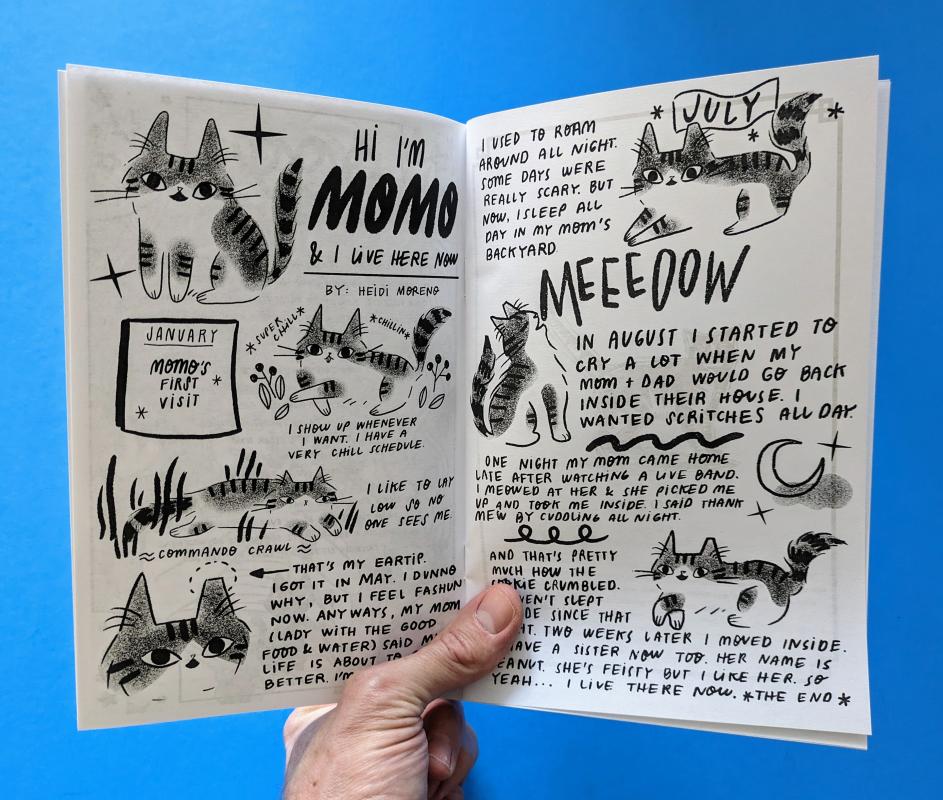 HI I'M
MOMO
& I LIVE HERE NOW
BY: HEIDI MORENO
JANUARY
MOMO'S
FIRST
VISIT
*SUPER
CHILL*
*CHILLIN*
I SHOW UP WHENEVER
I WANT. I HAVE A
VERY CHILL SCHEDULE.
I LIKE TO LAY
LOW SO NO
ONE SEES ME.
≈COMMANDO CRAWL≈
THAT'S MY EARTIP.
I GOT IT IN MAY. I DUNNO
WHY, BUT I FEEL FASHUN
NOW. ANYWAYS, MY MOM
(LADY WITH THE GOOD
FOOD & WATER) SAID
LIFE IS ABOUT TO
BETTER. I'M
JULY
I USED TO ROAM
AROUND ALL NIGHT.
SOME DAYS WERE
REALLY SCARY. BUT
NOW, I SLEEP ALL
DAY IN MY MOM'S
BACKYARD.
MEEEOOW
IN AUGUST I STARTED TO
CRY A LOT WHEN MY
MOM + DAD WOULD GO BACK
INSIDE THEIR HOUSE. I
WANTED SCRITCHES ALL DAY.
ONE NIGHT MY MOM CAME HOME
LATE AFTER WATCHING A LIVE BAND.
I MEOWED AT HER & SHE PICKED ME
UP AND TOOK ME INSIDE. I SAID THANK
MEW BY CUDDLING ALL NIGHT.
AND THAT'S PRETTY
MUCH HOW THE
CRUMBLED.
SLEPT
SINCE THAT
TWO WEEKS LATER I MOVED INSIDE.
HAVE A SISTER NOW TOO. HER NAME IS
PEANUT. SHE'S FEISTY BUT I LIKE HER. SO
YEAH... I LIVE THERE NOW. *THE END*